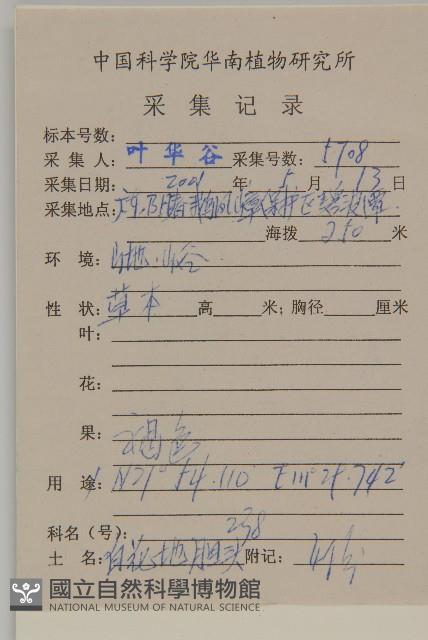 中国科学院华南植物研究所
采集记录
标本号数:
采集人: 叶华谷 采集号数: 5708
采集日期: 2001 年 5 月 13 日
采集地点: 保护区
海拨 250 米
环境: 山地·山谷
性状: 草本 高 米; 胸径 厘米
叶:
花:
果: 褐色
用途: N21° 54.110 E111° 29.742
科名(号): 238
土名: 白花地胆头 附记:
國立自然科學博物館
NATIONAL MUSEUM OF NATURAL SCIENCE